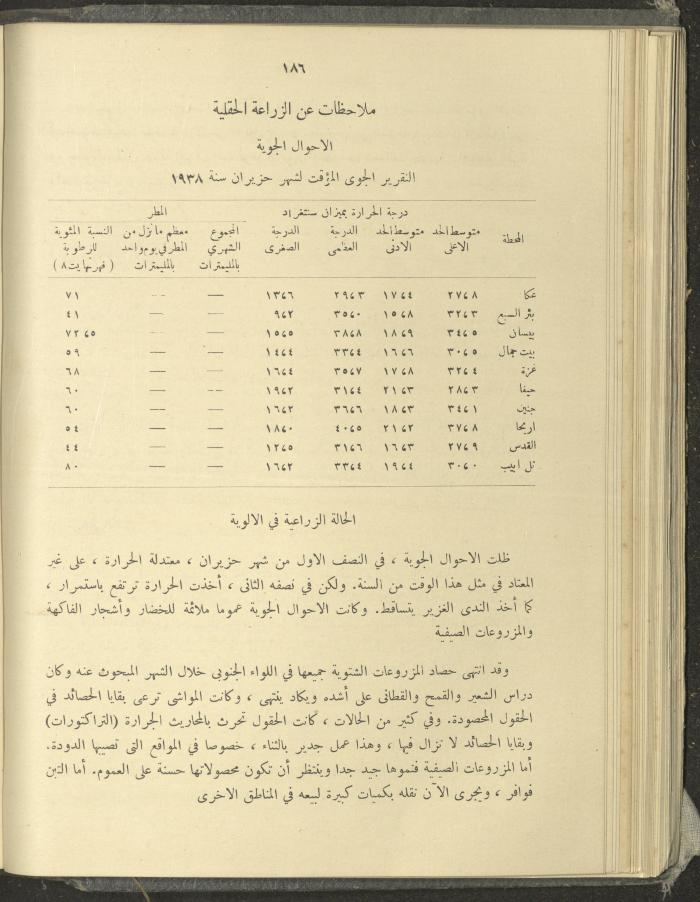 ١٨٦
ملاحظات عن الزراعة الحقلية
الاحوال الجوية
التقرير الجوى المؤقت لشهر حزيران سنة ١٩٣٨
درجة الحرارة بميزان سنتغراد المطر
المحطة متوسط الحد متوسط الحد الدرجة الدرجة المجموع معظم ما نزل من النسبة المئوية
الاعلى الادنى العظمى الصغرى الشهري المطر في يوم واحد للرطوبة
بالمليمترات بالمليمترات (فهرنهايت ٨)
عكا ٢٧،٨ ١٧،٤ ٢٩،٣ ١٣،٦ — — ٧١
بئر السبع ٣٢،٣ ١٥،٨ ٣٥،٠ ٩،٢ — — ٤١
بيسان ٣٤،٥ ١٨،٩ ٣٨،٨ ١٥،٥ — — ٧٢،٥
بيت جمال ٣٠،٥ ١٦،٦ ٣٣،٤ ١٤،٤ — — ٥٩
غزة ٣٢،٤ ١٧،٨ ٣٥،٧ ١٦،٤ — — ٦٨
حيفا ٢٨،٣ ٢١،٣ ٣١،٤ ١٩،٢ — — ٦٠
جنين ٣٤،١ ١٨،٣ ٣٦،٦ ١٦،٢ — — ٦٠
اريحا ٣٧،٨ ٢١،٢ ٤٠،٥ ١٨،٠ — — ٥٤
القدس ٢٧،٩ ١٦،٣ ٣١،٦ ١٢،٥ — — ٤٤
تل ابيب ٣٠،٠ ١٩،٤ ٣٣،٤ ١٦،٢ — — ٨٠
الحالة الزراعية في الالوية
ظلت الاحوال الجوية ، في النصف الاول من شهر حزيران ، معتدلة الحرارة ، على غير
المعتاد في مثل هذا الوقت من السنة. ولكن في نصفه الثانى ، أخذت الحرارة ترتفع باستمرار ،
كما أخذ الندى الغزير يتساقط. وكانت الاحوال الجوية عموما ملائمة للخضار وأشجار الفاكهة
والمزروعات الصيفية
وقد انتهى حصاد المزروعات الشتوية جميعها في اللواء الجنوبى خلال الشهر المبحوث عنه وكان
دراس الشعير والقمح والقطانى على أشده ويكاد ينتهى ، وكانت المواشى ترعى بقايا الحصائد في
الحقول المحصودة. وفي كثير من الحالات ، كانت الحقول تحرث بالمحاريث الجرارة (التراكتورات)
وبقايا الحصائد لا تزال فيها ، وهذا عمل جدير بالثناء ، خصوصا في المواقع التى تصيبها الدودة.
أما المزروعات الصيفية فنموها جيد جدا وينتظر أن تكون محصولاتها حسنة على العموم. أما التبن
فوافر ، ويجرى الآن نقله بكميات كبيرة لبيعه في المناطق الاخرى